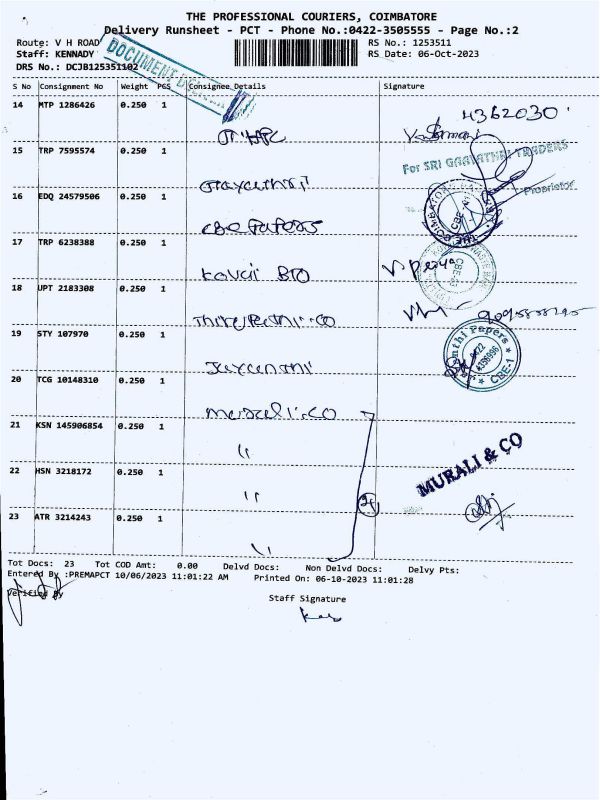 THE PROFESSIONAL COURIERS, COIMBATORE
Delivery Runsheet - PCT - Phone No.:0422-3505555 - Page No.:2
Route: V H ROAD
RS No.: 1253511
Staff: KENNADY
RS Date: 06-Oct-2023
DRS No.: DCJB125351102
DOCUMENT
S No Consignment No Weight PCS Consignee Details Signature
14 MTP 1286426 0.250 1
4362030
15 TRP 7595574 0.250 1
For SRI GAAYATHRI TRADERS
Proprietor
Gayathri
16 EDQ 24579506 0.250 1
CBE Papers
17 TRP 6238388 0.250 1
Kovai Bio
18 UPT 2183308 0.250 1
19 STY 107970 0.250 1
Jayanthi
Papers
CBE-1
20 TCG 10148310 0.250 1
Murali.CO
21 KSN 145906854 0.250 1
"
MURALI & CO
22 HSN 3218172 0.250 1
"
23 ATR 3214243 0.250 1
"
Tot Docs: 23 Tot COD Amt: 0.00 Delvd Docs: Non Delvd Docs: Delvy Pts:
Entered By :PREMAPCT 10/06/2023 11:01:22 AM Printed On: 06-10-2023 11:01:28
Verified By
Staff Signature